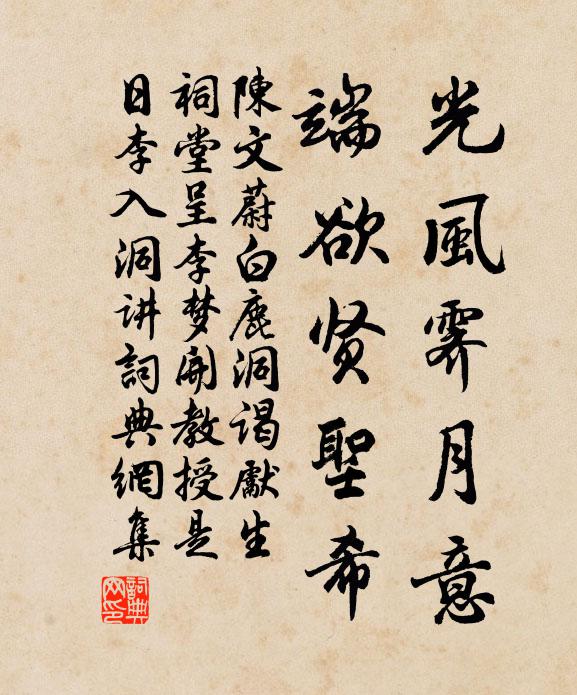 光風霽月意
端欲贤聖希
陳文蔚白鹿洞谒獻生
祠堂呈李梦開教授是
日李入洞讲詞典網集
詞典網印